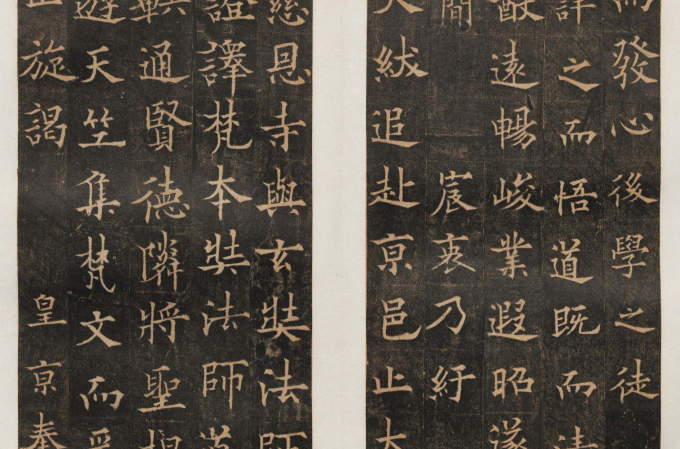 而發心後學之徒
詳之而悟道既而清
猷遠暢峻業遐昭遂
簡 宸衷乃紆
天紱追赴京邑止大
慈恩寺與玄奘法師
證譯梵本奘法師道
軼通賢德隣將聖
遊天竺集梵文而
旋謁 皇京奉